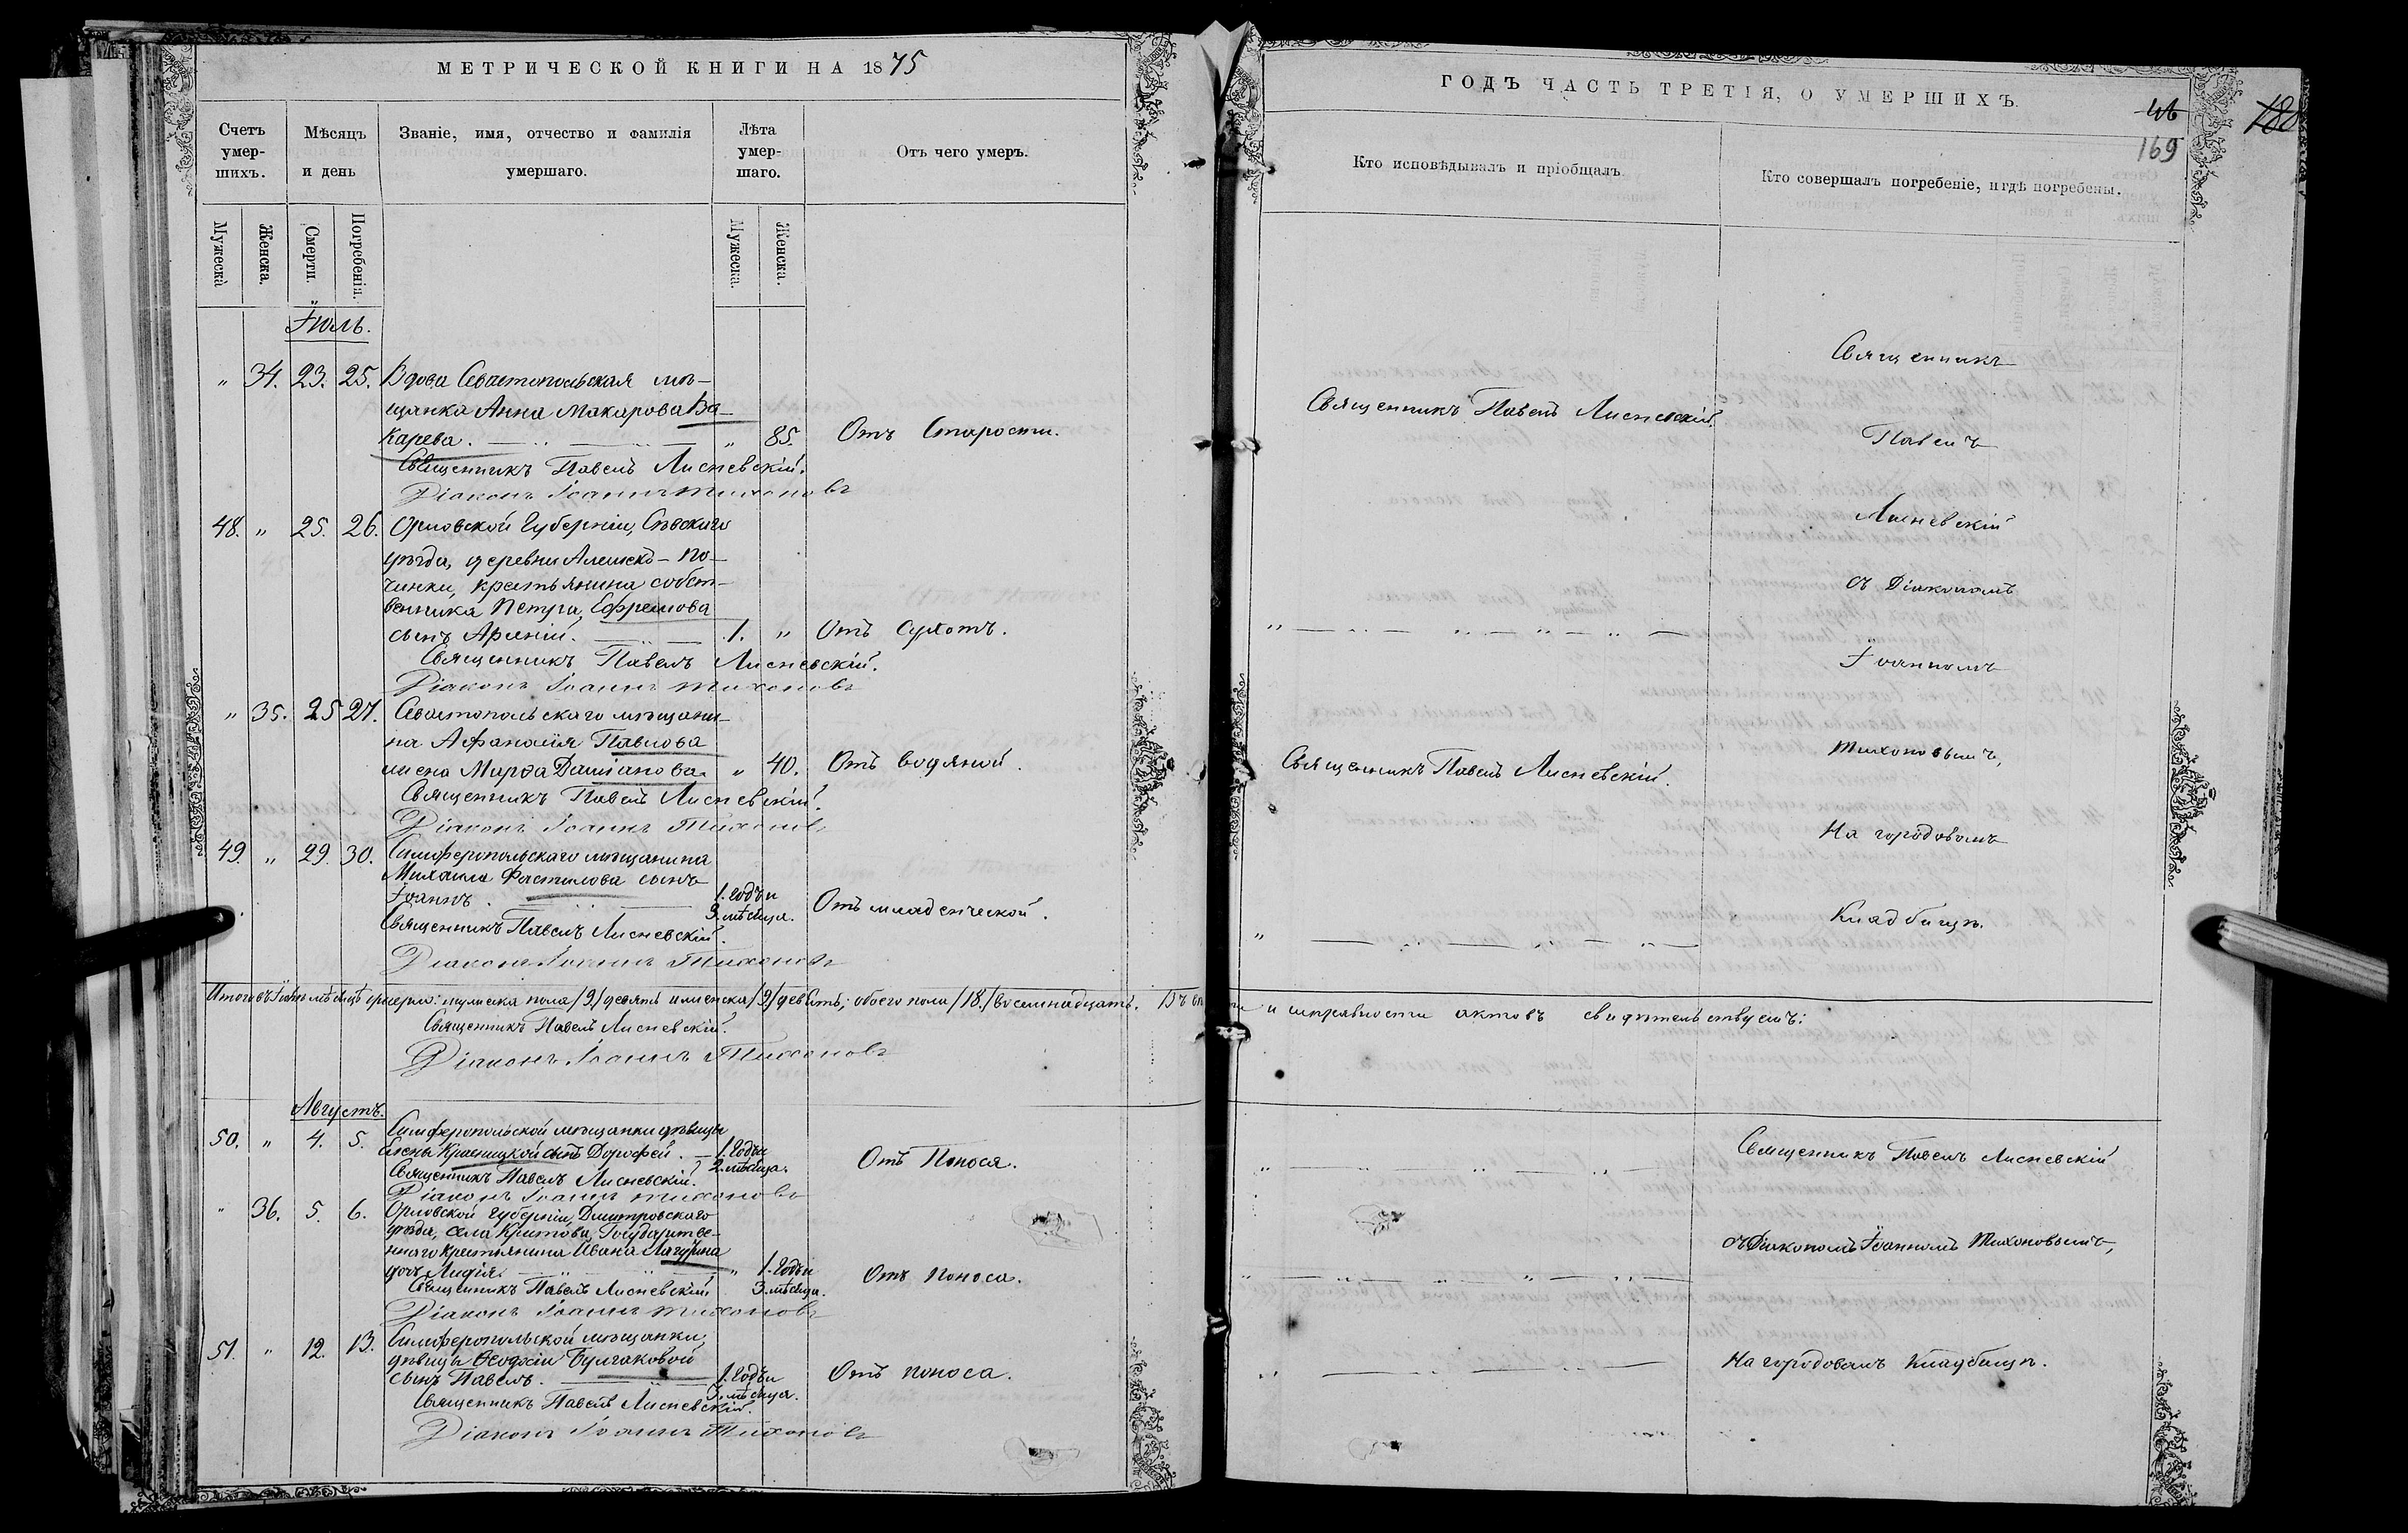 МЕТРИЧЕСКОЙ КНИГИ НА 1875
Счетъ умер-шихъ.
Мѣсяцъ и день
Званіе, имя, отчество и фамилія умершаго.
Лѣта умер-шаго.
Отъ чего умеръ.
Мужеска
Женска.
Смерти.
Погребенія.
Мужеска.
Женска.
Іюль.
" 34. 23. 25. Вдова Севастопольская мѣ-
щанка Анна Макарова Ва-
карева. " 85. Отъ Старости.
Священникъ Павелъ Лисневскій.
Діаконъ Іоаннъ Тихоновъ
48. " 25. 26. Орловской Губерніи, Сѣвскаго
уѣзда, деревни По-
чинки, крестьянина собст-
венника Петра Ефремова
сынъ Арсеній. 1. " Отъ Сухотъ.
Священникъ Павелъ Лисневскій.
Діаконъ Іоаннъ Тихоновъ
" 35. 25 27. Севастопольскаго мѣщани-
на Афанасія Павлова
жена Марѳа Даміанова. " 40. Отъ водяной.
Священникъ Павелъ Лисневскій.
Діаконъ Іоаннъ Тихоновъ
49. " 29. 30. Симферопольскаго мѣщанина
Михаила сынъ
Іоаннъ. 1. годъ и
3. мѣсяца. Отъ младенческой.
Священникъ Павелъ Лисневскій.
Діаконъ Іоаннъ Тихоновъ
Итого въ Іюлѣ мѣсяцѣ умерло: мужеска пола /9/ девять и женска /9/ девять; обоего пола /18./ восемнадцать.
Священникъ Павелъ Лисневскій.
Діаконъ Іоаннъ Тихоновъ
Августъ.
50. " 4. 5. Симферопольской мѣщанки дѣвицы
Елены Красницкой сынъ Дорофей. 1. годъ и
2. мѣсяца. Отъ Поноса.
Священникъ Павелъ Лисневскій.
Діаконъ Іоаннъ Тихоновъ
" 36. 5. 6. Орловской Губерніи, Дмитровскаго
уѣзда, села Государстве-
ннаго крестьянина Ивана Лагутина
дочь Лидія. " 1. годъ и
3. мѣсяца. Отъ Поноса.
Священникъ Павелъ Лисневскій
Діаконъ Іоаннъ Тихоновъ
51. " 12. 13. Симферопольской мѣщанки,
дѣвицы Ѳеодосіи Булгаковой
сынъ Павелъ. 1. годъ и
3. мѣсяца. Отъ поноса.
Священникъ Павелъ Лисневскій.
Діаконъ Іоаннъ Тихоновъ
ГОДЪ ЧАСТЬ ТРЕТІЯ, О УМЕРШИХЪ.
169
188
Кто исповѣдывалъ и пріобщалъ.
Кто совершалъ погребеніе, и гдѣ погребены.
Священникъ Павелъ Лисневскій.
Священникъ
Павелъ
Лисневскій
съ Діакономъ
Іоанномъ
Священникъ Павелъ Лисневскій.
Тихоновымъ,
На городовомъ
Кладбищѣ.
и исправности актовъ свидѣтельствуемъ:
Священникъ Павелъ Лисневскій
съ Діакономъ Іоанномъ Тихоновымъ,
На городовомъ кладбищѣ.